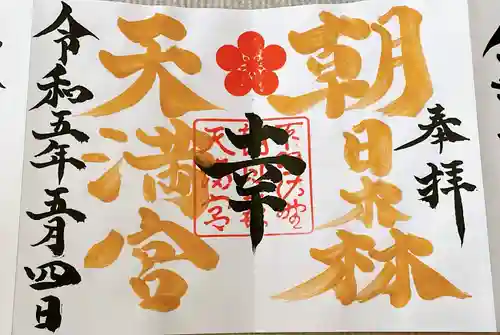 奉拝
朝日森
天満宮
幸
朝日森
天満宮
令和五年五月四日